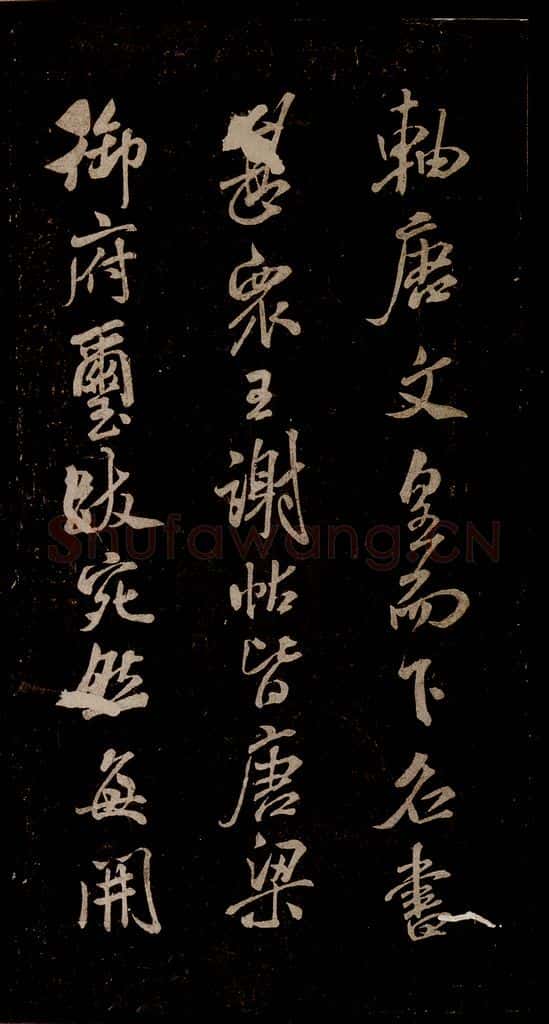 軸唐文皇而下名書
甚眾王謝帖皆唐梁
御府璽跋宛然每開
Shufawang.CN